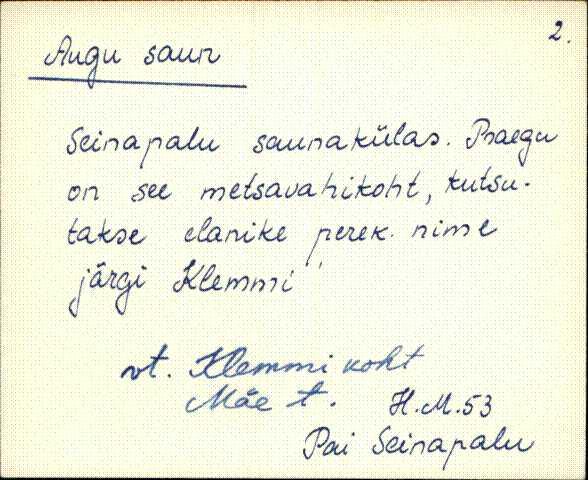 2.
Augu saun
Seinapalu saunakülas. Praegu
on see metsavahikoht, kutsu-
takse elanike perek. nime
järgi Klemmi
vt. Klemmi koht
Mäe t.
H.M.53
Pai Seinapalu